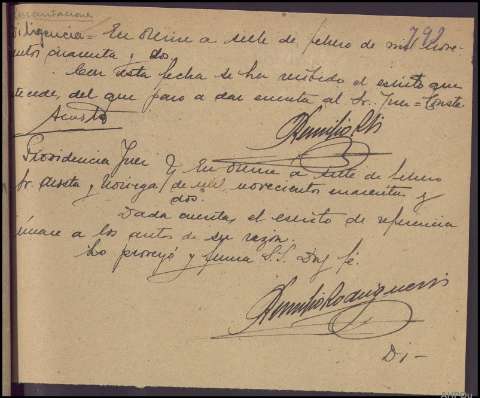 Diligencia = En Orense a siete de febrero de mil nove-
cientos cuarenta y dos
Con esta fecha se ha recibido el escrito que
antecede, del que paso a dar cuenta al Sr. Juez = Conste
Acosta
Providencia Juez } En Orense a siete de febrero
Sr. Acosta y Noriega / de mil novecientos cuarenta y
dos.
Dada cuenta, el escrito de referencia
únase a los autos de su razón.
Lo proveyó y firma S.S. Doy fé.
Di-